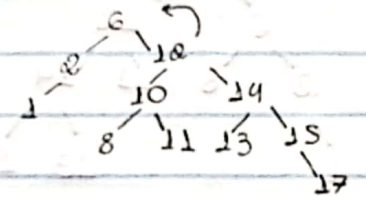 6
2 12
1 10 14
8 11 13 15
17